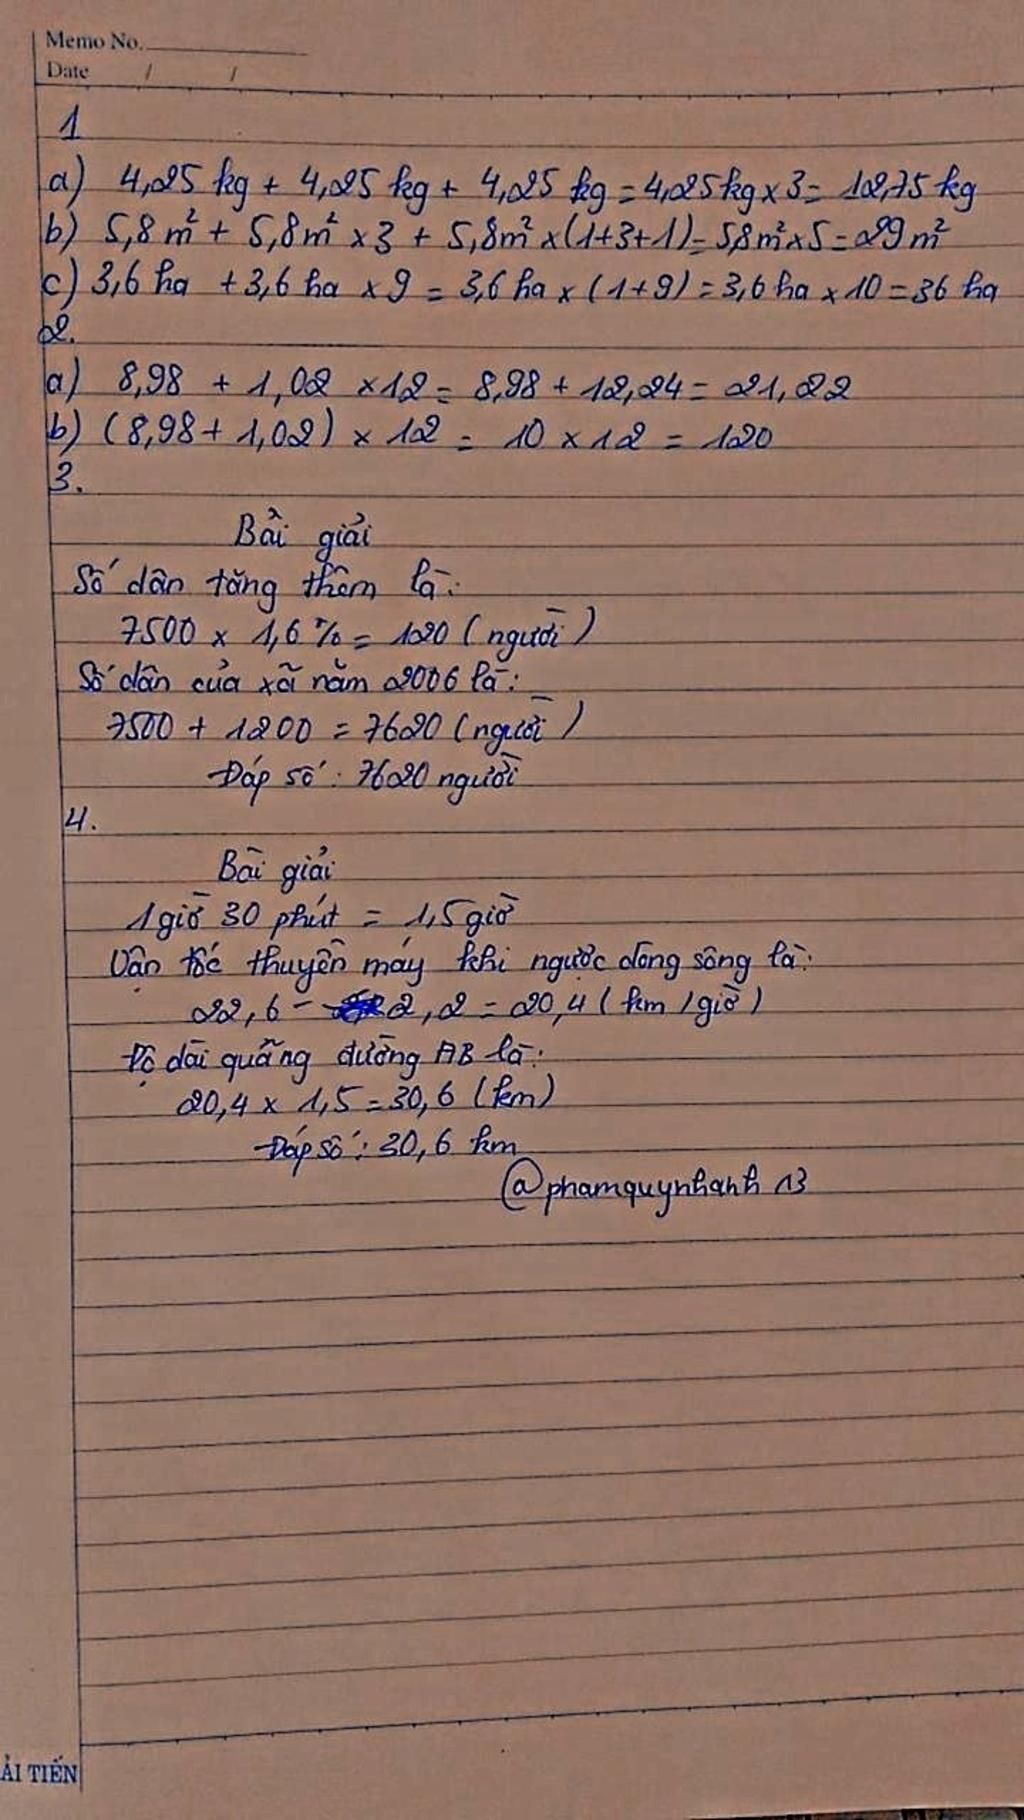 Memo No.
Date / /
1
a) 4,25 kg + 4,25 kg + 4,25 kg = 4,25 kg x 3 = 12,75 kg
b) 5,8 m² + 5,8 m² x 3 + 5,8 m² x (1+3+1) = 5,8 m² x 5 = 29 m²
c) 3,6 ha + 3,6 ha x 9 = 3,6 ha x (1+9) = 3,6 ha x 10 = 36 ha
2.
a) 8,98 + 1,02 x 12 = 8,98 + 12,24 = 21,22
b) (8,98 + 1,02) x 12 = 10 x 12 = 120
3.
Bài giải
Số dân tăng thêm là:
7500 x 1,6 % = 120 (người)
Số dân của xã năm 2006 là:
7500 + 1200 = 7620 (người)
Đáp số: 7620 người
4.
Bài giải
1 giờ 30 phút = 1,5 giờ
Vận tốc thuyền máy khi ngược dòng sông là:
22,6 - 2,2 = 20,4 (km/giờ)
Độ dài quãng đường AB là:
20,4 x 1,5 = 30,6 (km)
Đáp số: 30,6 km
@phamquynhanh13
ẢI TIẾN